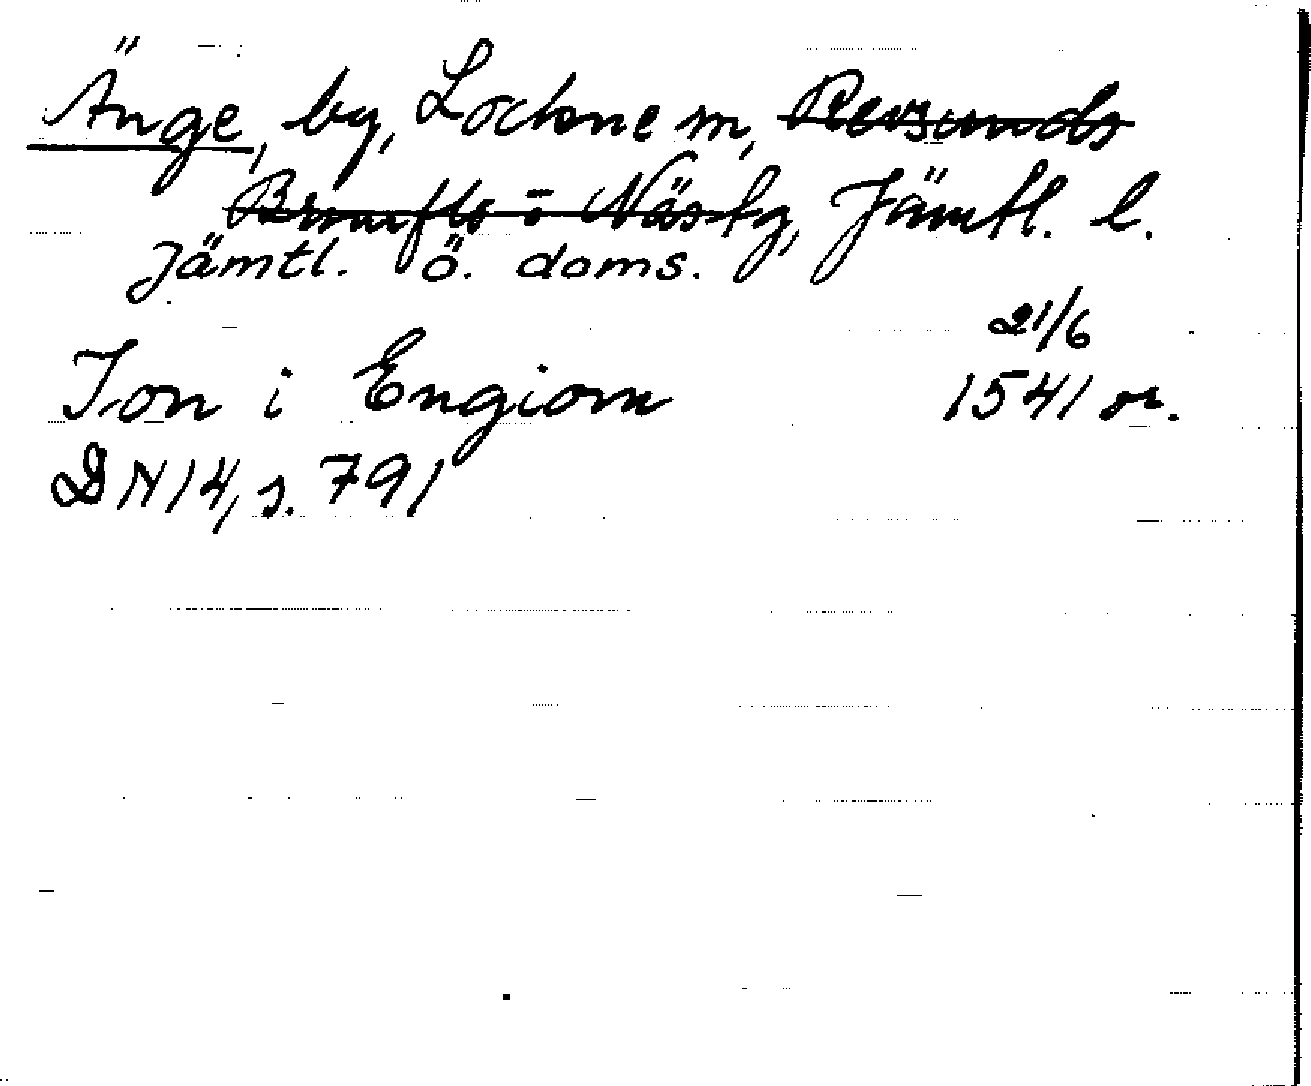 Änge, by, Lockne sn, Revsunds
Brunflo o Näs tg, Jämtl. l.
Jämtl. ö. doms.
21/6
Jon i Engiom 1541 or.
DN 14, s. 791